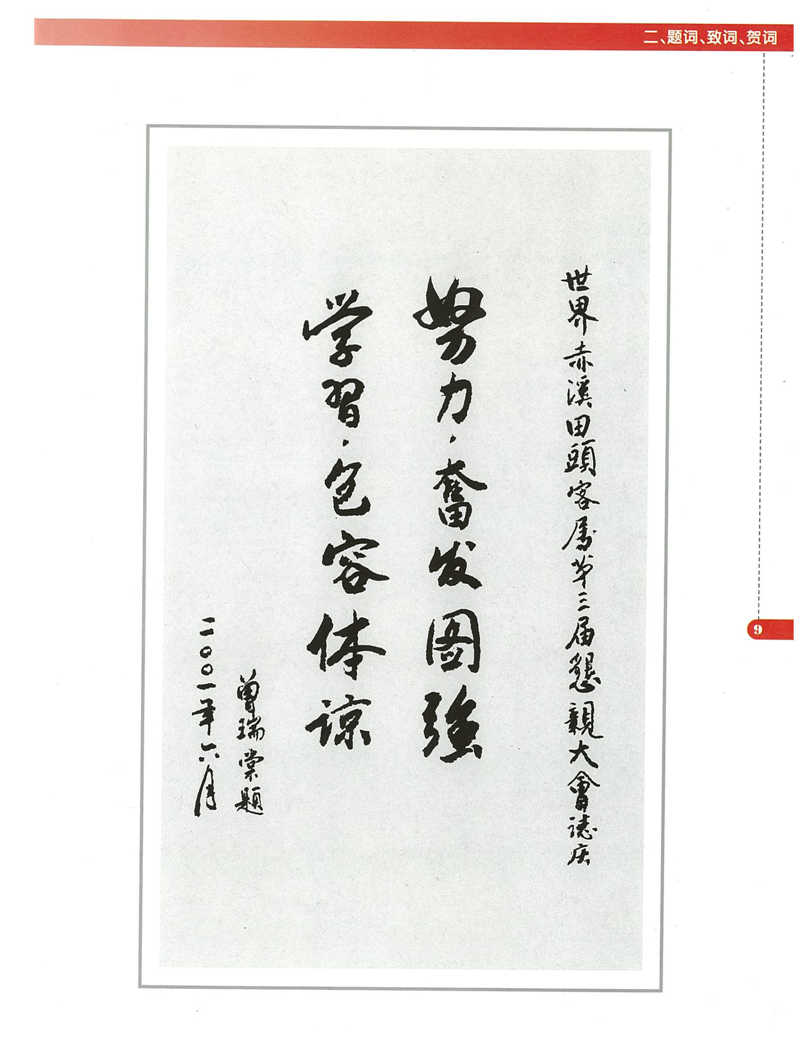 二、题词、致词、贺词
世界赤溪田頭客属第三届懇親大會誌庆
努力·奮发图强
学習·包容体谅
曾瑞棠题
二〇〇一年六月
9